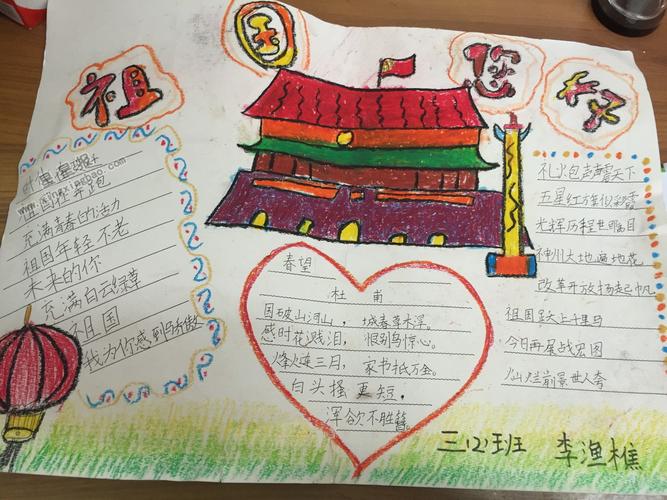 祖国您好
祖国在奔跑
充满青春的活力
祖国年轻不老
未来的你
充满白云绿草
祖国
我为你感到骄傲
春望
杜甫
国破山河山,城春草木浮。
感时花溅泪,恨别鸟惊心。
烽火连三月,家书抵万金。
白头搔更短,
浑欲不胜簪。
礼火包声震天下
五星红旗似彩霞
光辉历程世瞩目
神州大地遍地花
改革开放扬起帆
祖国跃上千里马
今日再展战宏图
灿烂前景世人夸
三(2)班 李渔樵